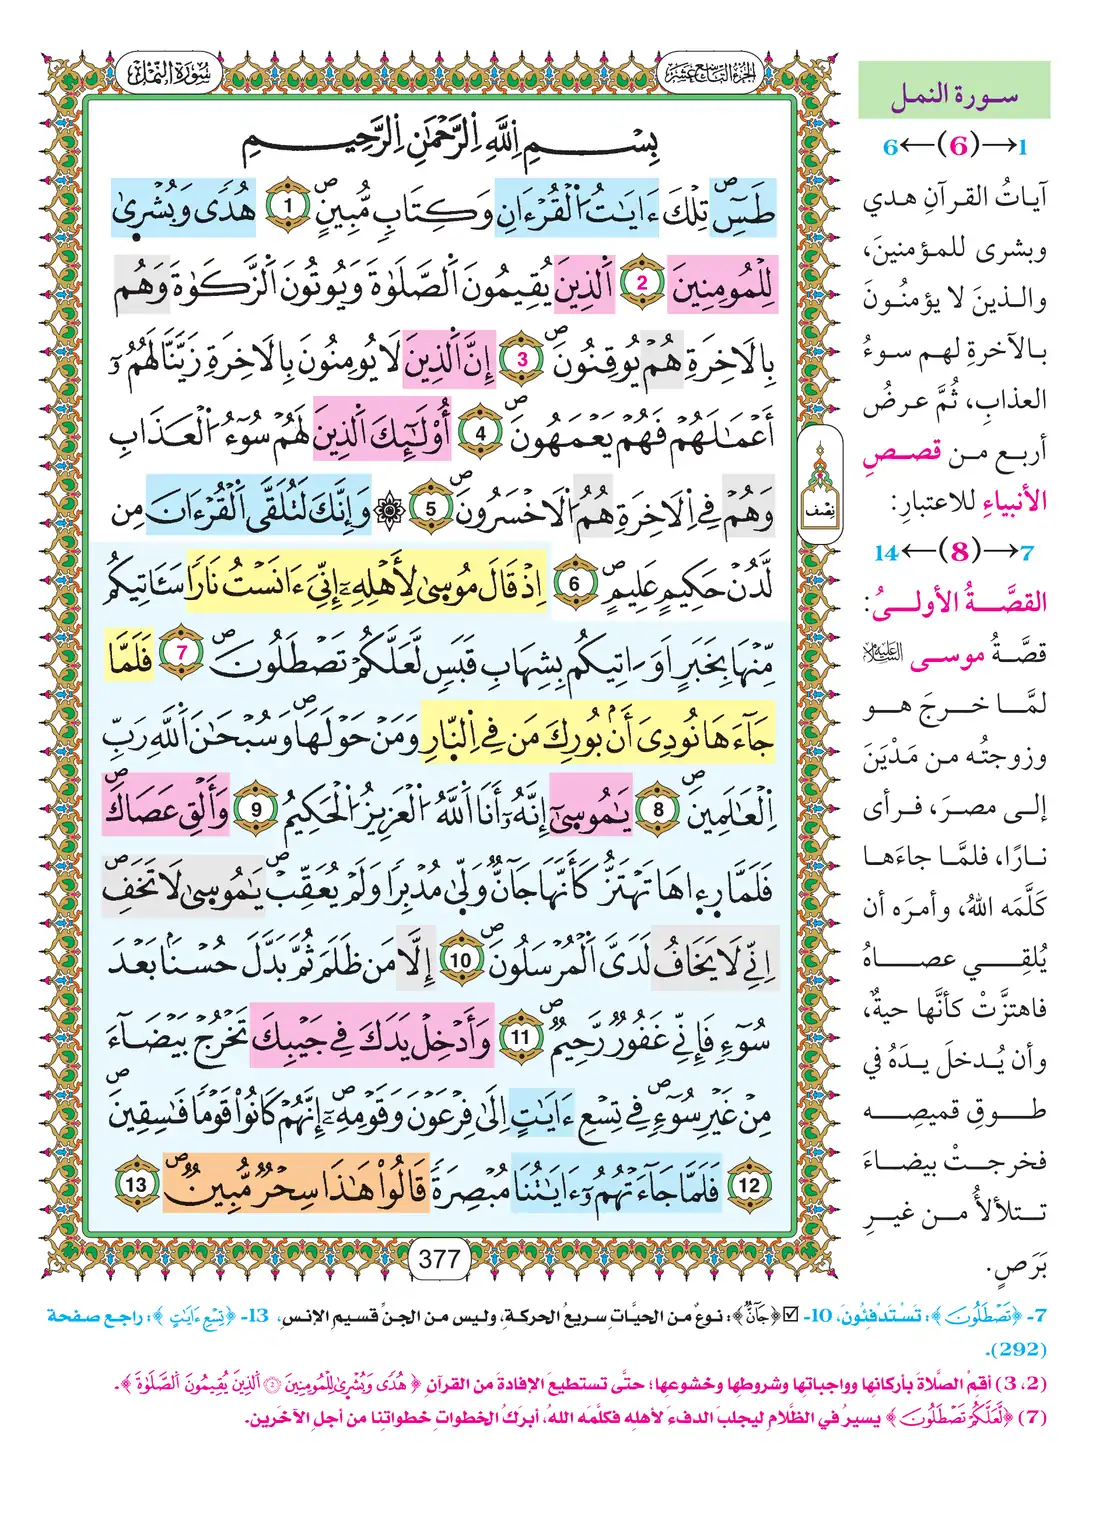 سُورَةُ النَّمْل
الجُزْءُ التَّاسِعَ عَشَرَ
بِسْمِ اِ۬للَّهِ اِ۬لرَّحْمَٰنِ اِ۬لرَّحِيمِ
طَسِٓۖ تِلْكَ ءَايَٰتُ اُ۬لْقُرْءَانِ وَكِتَابٖ مُّبِينٍۖ 1 هُديٗ وَبُشْر۪يٰ
لِلْمُومِنِينَ 2 اَ۬لذِينَ يُقِيمُونَ اَ۬لصَّلَوٰةَ وَيُوتُونَ اَ۬لزَّكَوٰةَ وَهُم
بِالَاخِرَةِ هُمْ يُوقِنُونَۖ 3 إِنَّ اَ۬لذِينَ لَا يُومِنُونَ بِالَاخِرَةِ زَيَّنَّا لَهُمُۥٓ
أَعْمَٰلَهُمْ فَهُمْ يَعْمَهُونَۖ 4 أُوْلَٰٓئِكَ اَ۬لذِينَ لَهُمْ سُوٓءُ اُ۬لْعَذَابِ
وَهُمْ فِي اِ۬لَاخِرَةِ هُمُ اُ۬لَاخْسَرُونَۖ 5 ۞ وَإِنَّكَ لَتُلَقَّى اَ۬لْقُرْءَانَ مِن
لَّدُنْ حَكِيمٍ عَلِيمٍۖ 6 اِذْ قَالَ مُوس۪يٰ لِأَهْلِهِۦٓ إِنِّيَ ءَانَسْتُ نَاراٗ سَـَٔاتِيكُم
مِّنْهَا بِخَبَرٍ اَوَ اٰتِيكُم بِشِهَابِ قَبَسٖ لَّعَلَّكُمْ تَصْطَلُونَۖ 7 فَلَمَّا
جَآءَهَا نُودِيَ أَنۢ بُورِكَ مَن فِي اِ۬لنّ۪ارِ وَمَنْ حَوْلَهَاۖ وَسُبْحَٰنَ اَ۬للَّهِ رَبِّ
اِ۬لْعَٰلَمِينَۖ 8 يَٰمُوس۪يٰٓ إِنَّهُۥٓ أَنَا اَ۬للَّهُ اُ۬لْعَزِيزُ اُ۬لْحَكِيمُ 9 وَأَلْقِ عَصَاكَۖ
فَلَمَّا ر۪ء۪اهَا تَهْتَزُّ كَأَنَّهَا جَآنّٞ وَلّ۪يٰ مُدْبِراٗ وَلَمْ يُعَقِّبْۖ يَٰمُوس۪يٰ لَا تَخَفِۖ
اِنِّي لَا يَخَافُ لَدَيَّ اَ۬لْمُرْسَلُونَۖ 10 إِلَّا مَن ظَلَمَ ثُمَّ بَدَّلَ حُسْناَۢ بَعْدَ
سُوٓءٖ فَإِنِّي غَفُورٞ رَّحِيمٞۖ 11 وَأَدْخِلْ يَدَكَ فِي جَيْبِكَ تَخْرُجْ بَيْضَآءَ
مِنْ غَيْرِ سُوٓءٖۖ فِي تِسْعِ ءَايَٰتٍ اِلَىٰ فِرْعَوْنَ وَقَوْمِهِۦٓۖ إِنَّهُمْ كَانُواْ قَوْماٗ فَٰسِقِينَۖ
12 فَلَمَّا جَآءَتْهُمُۥٓ ءَايَٰتُنَا مُبْصِرَةٗ قَالُواْ هَٰذَا سِحْرٞ مُّبِينٞۖ 13
377
نِصْف
سـورة النمـل
1→(6)←6
آيـاتُ القـرآنِ هـدي
وبـشرى للمـؤمنينَ،
والـذينَ لا يؤمنُـونَ
بـالآخرةِ لهـم سـوءُ
العذابِ، ثُمَّ عـرضُ
أربـع مـن قصـصِ
الأنبيـاءِ للاعتبـارِ:
7→(8)←14
القصَّـةُ الأولـىُ:
قصَّـةُ موسـى عليه السلام
لمَّـا خـرجَ هـو
وزوجتُـه مـن مَـدْيَنَ
إلـى مصـرَ، فـرأى
نـارًا، فلمَّـا جاءَهـا
كلَّمَه اللهُ، وأمرَه أن
يُلقِـي عصـاهُ
فاهتزَّتْ كأنَّها حيةٌ،
وأن يُـدخلَ يـدَهُ في
طـوقِ قميصِـه
فخرجـتْ بيضـاءَ
تـتلألأُ مـن غيـرِ
بَرَصٍ.
7- ﴿تَصْطَلُونَ﴾: تَسْتَدْفِئُونَ، 10- ☑﴿جَآنّٞ﴾: نوعٌ من الحيَّاتِ سريعُ الحركةِ، وليس من الجنِّ قسيمِ الإنسِ، 13- ﴿تِسْعِ ءَايَٰتٍ﴾: راجع صفحة
(292).
(2، 3) أقِمْ الصَّلاةَ بأركانِها وواجباتِها وشروطِها وخشوعِها؛ حتَّى تستطيعَ الإفادةَ من القرآنِ ﴿ هُديٗ وَبُشْر۪يٰ لِلْمُومِنِينَ ۝ اَ۬لذِينَ يُقِيمُونَ اَ۬لصَّلَوٰةَ ﴾.
(7) ﴿لَّعَلَّكُمْ تَصْطَلُونَ﴾ يسيرُ في الظَّلامِ ليجلبَ الدفءَ لأهلِه فكلَّمَه اللهُ، أبركُ الخطواتِ خطواتنا من أجلِ الآخَرين.